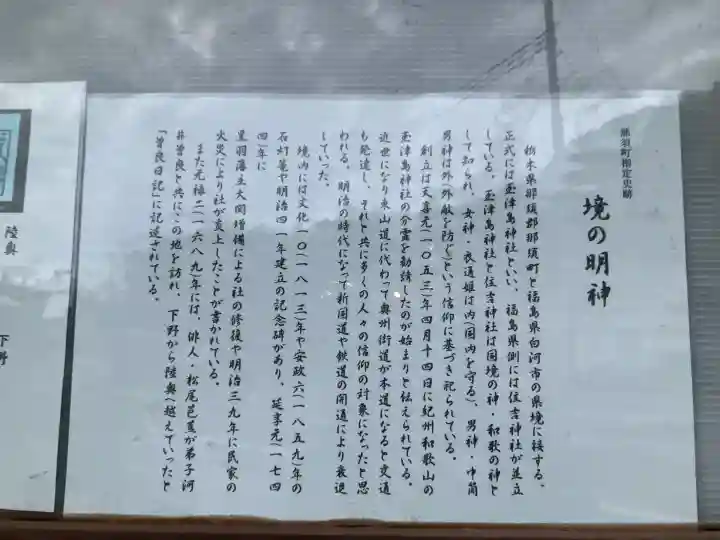 那須町指定史跡
境の明神
栃木県那須郡那須町と福島県白河市の県境に接する。
正式には玉津島神社といい、福島県側には住吉神社が並立
している。玉津島神社と住吉神社は国境の神・和歌の神と
して知られ、女神・衣通姫は内(国内を守る)、男神・中筒
男神は外(外敵を防ぐ)という信仰に基づき祀られている。
創立は天喜元(一〇五三)年四月十四日に紀州和歌山の
玉津島神社の分霊を勧請したのが始まりと伝えられている。
近世になり東山道に代わって奥州街道が本道になると交通
も発達し、それと共に多くの人々の信仰の対象になったと思
われる。明治の時代になって新国道や鉄道の開通により衰退
していった。
境内には文化一〇(一八一三)年や安政六(一八五九)年の
石灯篭や明治四一年建立の記念碑があり、延享元(一七四
四)年に
黒羽藩主大関増備による社の修復や明治三九年に民家の
火災により社が炎上したことが書かれている。
また元禄二(一六八九)年には、俳人・松尾芭蕉が弟子河
井曽良と共にこの地を訪れ、下野から陸奥へ越えていったと
「曽良日記」に記述されている。
陸奥
下野